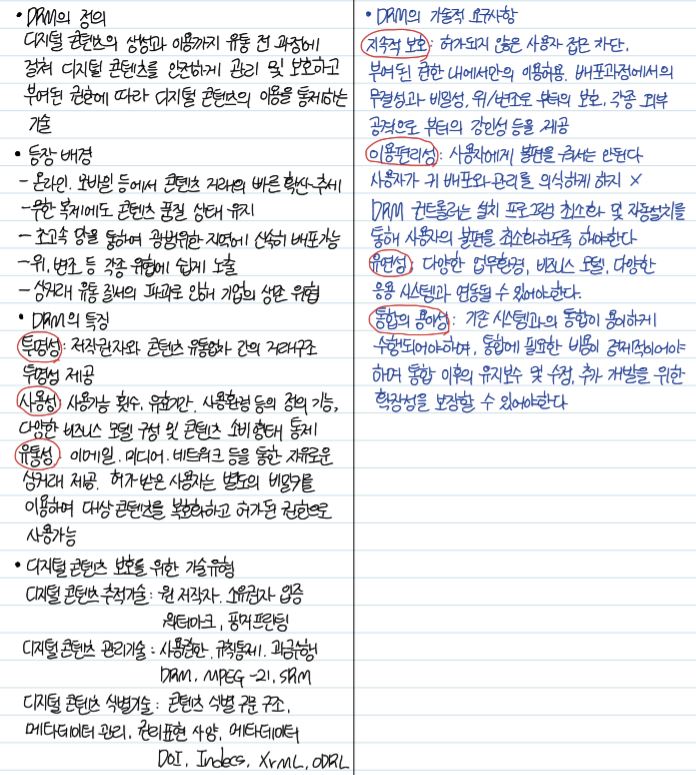 • DRM의 정의
디지털 콘텐츠의 생성과 이용까지 유통 전 과정에
걸쳐 디지털 콘텐츠를 안전하게 관리 및 보호하고
부여된 권한에 따라 디지털 콘텐츠의 이용을 통제하는
기술
• 등장 배경
- 온라인, 모바일 등에서 콘텐츠 거래의 빠른 확산 추세
- 무한 복제에도 콘텐츠 품질 상태 유지
- 초고속 망을 통하여 광범위한 지역에 신속히 배포가능
- 위, 변조 등 각종 위협에 쉽게 노출
- 상거래 유통 질서의 파괴로 인해 기업의 생존 위협
• DRM의 특징
투명성: 저작권자와 콘텐츠 유통업자 간의 거래구조
투명성 제공
사용성: 사용가능 횟수, 유효기간, 사용환경 등의 정의 기능,
다양한 비즈니스 모델 구성 및 콘텐츠 소비 형태 통제
유통성: 이메일, 미디어, 네트워크 등을 통한 자유로운
상거래 제공, 허가받은 사용자는 별도의 비밀키를
이용하여 대상 콘텐츠를 복호화하고 허가된 권한으로
사용가능
• 디지털 콘텐츠 보호를 위한 기술유형
디지털 콘텐츠 추적기술: 원 저작자, 소유권자 입증
워터마크, 핑거프린팅
디지털 콘텐츠 관리기술: 사용권한, 규칙통제, 과금수행
DRM, MPEG-21, SRM
디지털 콘텐츠 식별기술: 콘텐츠 식별 구문 구조,
메타데이터 관리, 권리표현 사양, 메타데이터
DOI, Indecs, XrML, ODRL
• DRM의 기술적 요구사항
지속적 보호: 허가되지 않은 사용자 접근 차단,
부여된 권한 내에서만의 이용허용, 배포과정에서의
무결성과 비밀성, 위/변조로 부터의 보호, 각종 외부
공격으로 부터의 강인성 등을 제공
이용편리성: 사용자에게 불편을 주서는 안된다
사용자가 키 배포와 관리를 의식하게 하지 X
DRM 컨트롤러는 설치 프로그램 최소화 및 자동설치를
통해 사용자의 불편을 최소화하도록 해야한다
유연성: 다양한 업무환경, 비즈니스 모델, 다양한
응용 시스템과 연동될 수 있어야한다.
통합의 용이성: 기존 시스템과의 통합이 용이하게
수행되어야하며, 통합에 필요한 비용이 경제적이어야
하며 통합 이후의 유지보수 및 수정, 추가 개발을 위한
확장성을 보장할 수 있어야한다